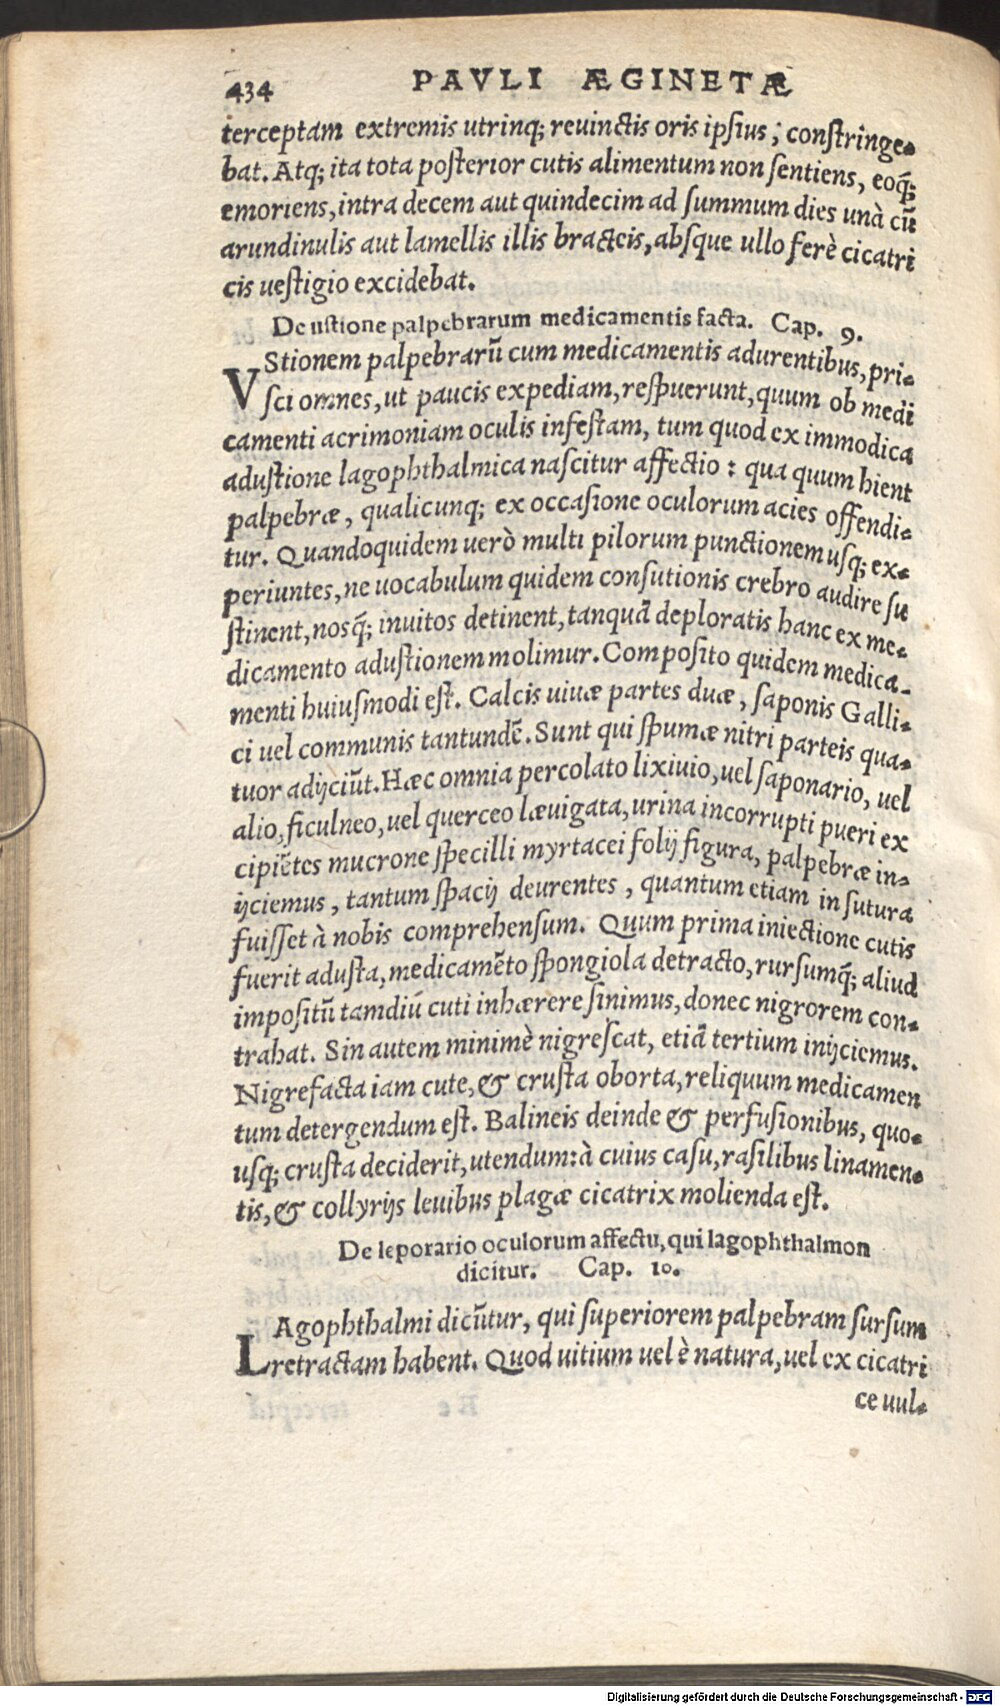 434 PAVLI ÆGINETÆ
terceptam extremis utrinq; reuinctis oris ipsius; constringe-
bat. Atq; ita tota posterior cutis alimentum non sentiens, eoq́;
emoriens, intra decem aut quindecim ad summum dies unà cũ
arundinulis aut lamellis illis bracteis, absque ullo ferè cicatri
cis uestigio excidebat.
De ustione palpebrarum medicamentis facta. Cap. 9.
VStionem palpebrarũ cum medicamentis adurentibus, pri-
sci omnes, ut paucis expediam, respuerunt, quum ob medi
camenti acrimoniam oculis infestam, tum quod ex immodica
adustione lagophthalmica nascitur affectio: qua quum hient
palpebræ, qualicunq; ex occasione oculorum acies offendi-
tur. Quandoquidem uerò multi pilorum punctionem usq; ex-
periuntes, ne uocabulum quidem consutionis crebro audire su
stinent, nosq́; inuitos detinent, tanquã deploratis hanc ex me-
dicamento adustionem molimur. Composito quidem medica-
menti huiusmodi est. Calcis uiuæ partes duæ, saponis Galli-
ci uel communis tantundẽ. Sunt qui spumæ nitri parteis qua-
tuor adijciũt. Hæc omnia percolato lixiuio, uel saponario, uel
alio, ficulneo, uel querceo læuigata, urina incorrupti pueri ex
cipiẽtes mucrone specilli myrtacei folij figura, palpebræ in-
ijciemus, tantum spacij deurentes, quantum etiam in sutura
fuisset à nobis comprehensum. Quum prima iniectione cutis
fuerit adusta, medicamẽto spongiola detracto, rursumq́; aliud
impositũ tamdiu cuti inhærere sinimus, donec nigrorem con-
trahat. Sin autem minimè nigrescat, etiã tertium inijciemus.
Nigrefacta iam cute, & crusta oborta, reliquum medicamen
tum detergendum est. Balineis deinde & perfusionibus, quo-
usq; crusta deciderit, utendum: à cuius casu, rasilibus linamen-
tis, & collyrijs leuibus plagæ cicatrix molienda est.
De leporario oculorum affectu, qui lagophthalmon
dicitur. Cap. 10.
LAgophthalmi dicũtur, qui superiorem palpebram sursum
retractam habent. Quod uitium uel è natura, uel ex cicatri
ce uul-
Digitalisierung gefördert durch die Deutsche Forschungsgemeinschaft - DFG